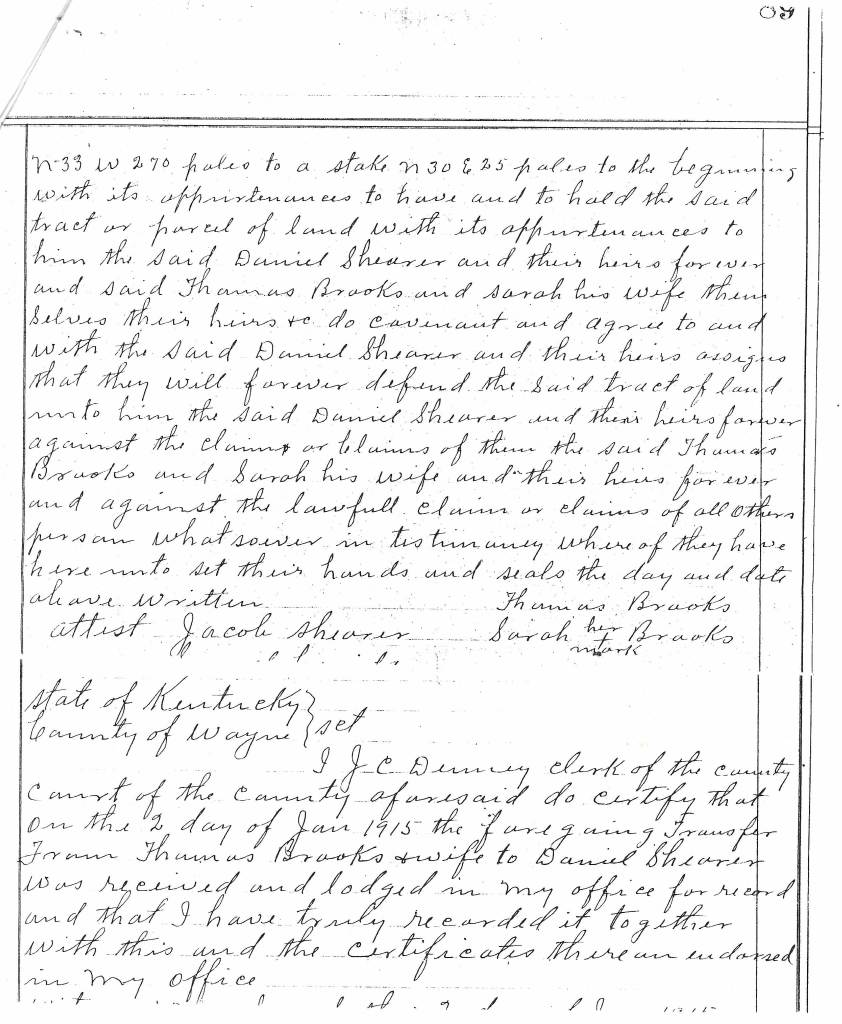 N 33 W 270 poles to a stake N 30 E 25 poles to the beginning
with its appurtenances to have and to hold the said
tract or parcel of land with its appurtenances to
him the said Daniel Shearer and their heirs for ever
and said Thomas Brooks and Sarah his wife them
selves their heirs &c do covenant and agree to and
with the said Daniel Shearer and their heirs assigns
that they will forever defend the said tract of land
unto him the said Daniel Shearer and their heirs forever
against the claims or claims of them the said Thomas
Brooks and Sarah his wife and their heirs for ever
and against the lawfull claim or claims of all others
person whatsoever in testimoney where of they have
here unto set their hands and seals the day and date
above written Thomas Brooks
attest Jacob Shearer Sarah her + mark Brooks
State of Kentucky
County of Wayne } sct
I J C Denney clerk of the county
Court of the County aforesaid do certify that
on the 2 day of Jan 1915 the foregoing Transfer
From Thomas Brooks & wife to Daniel Shearer
was received and lodged in my office for record
and that I have truly recorded it together
with this and the certificates thereon endorsed
in my office